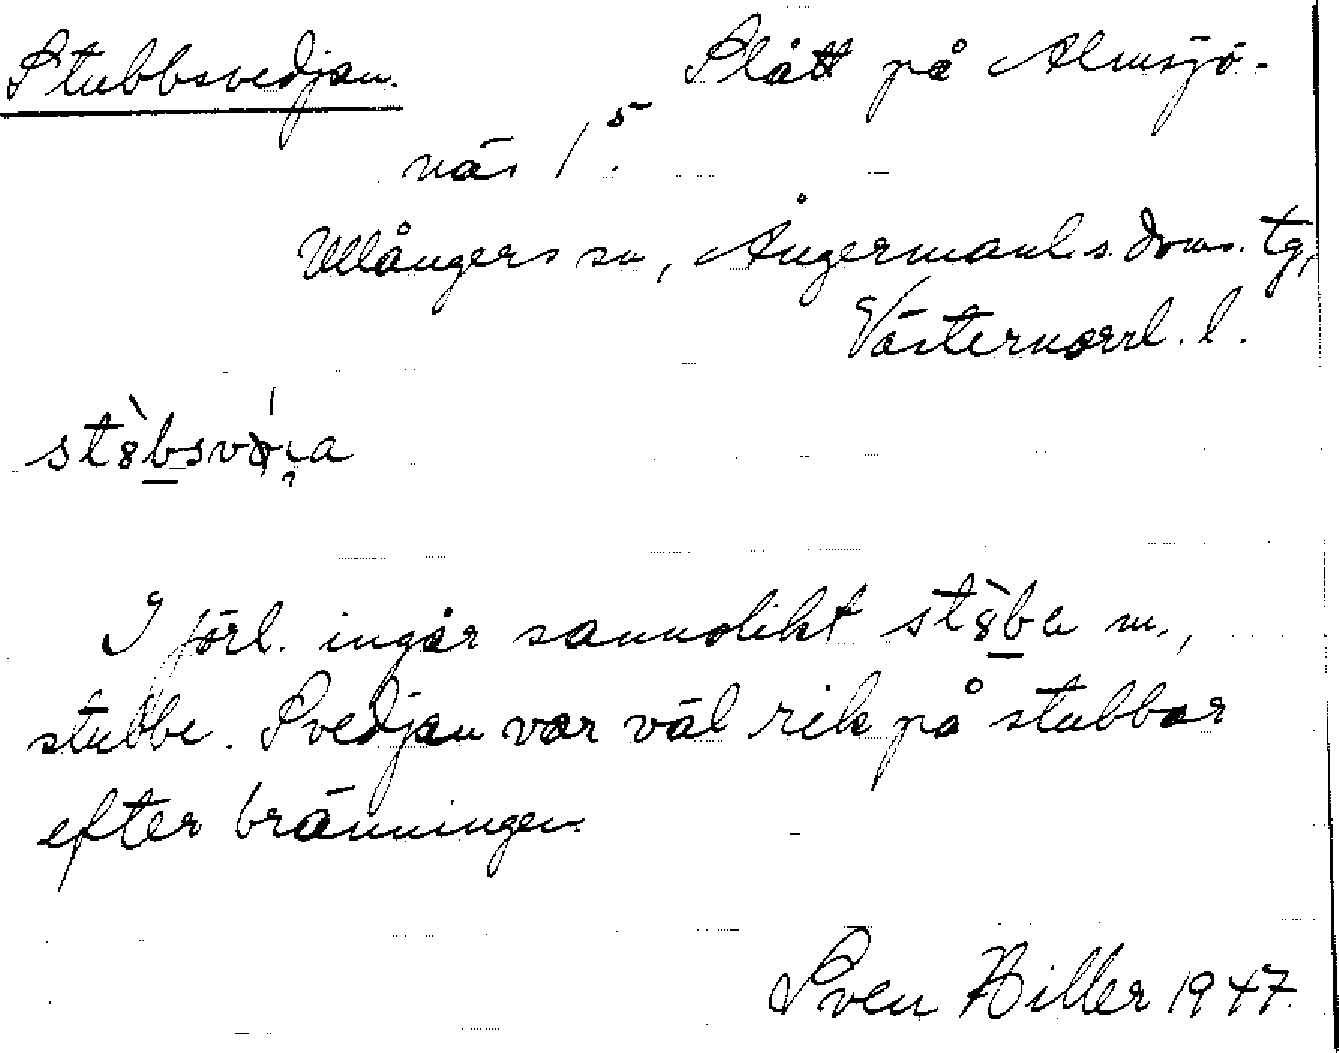 Stubbsvedjan. Slått på Almsjö-
näs 1⁵.
Ullångers sn, Ångermanl. s. doms. tg,
Västernorrl. l.
I förl. ingår sannolikt
stubbe. Svedjan var väl rik på stubbar
efter bränningen.
Sven Hiller 1947.